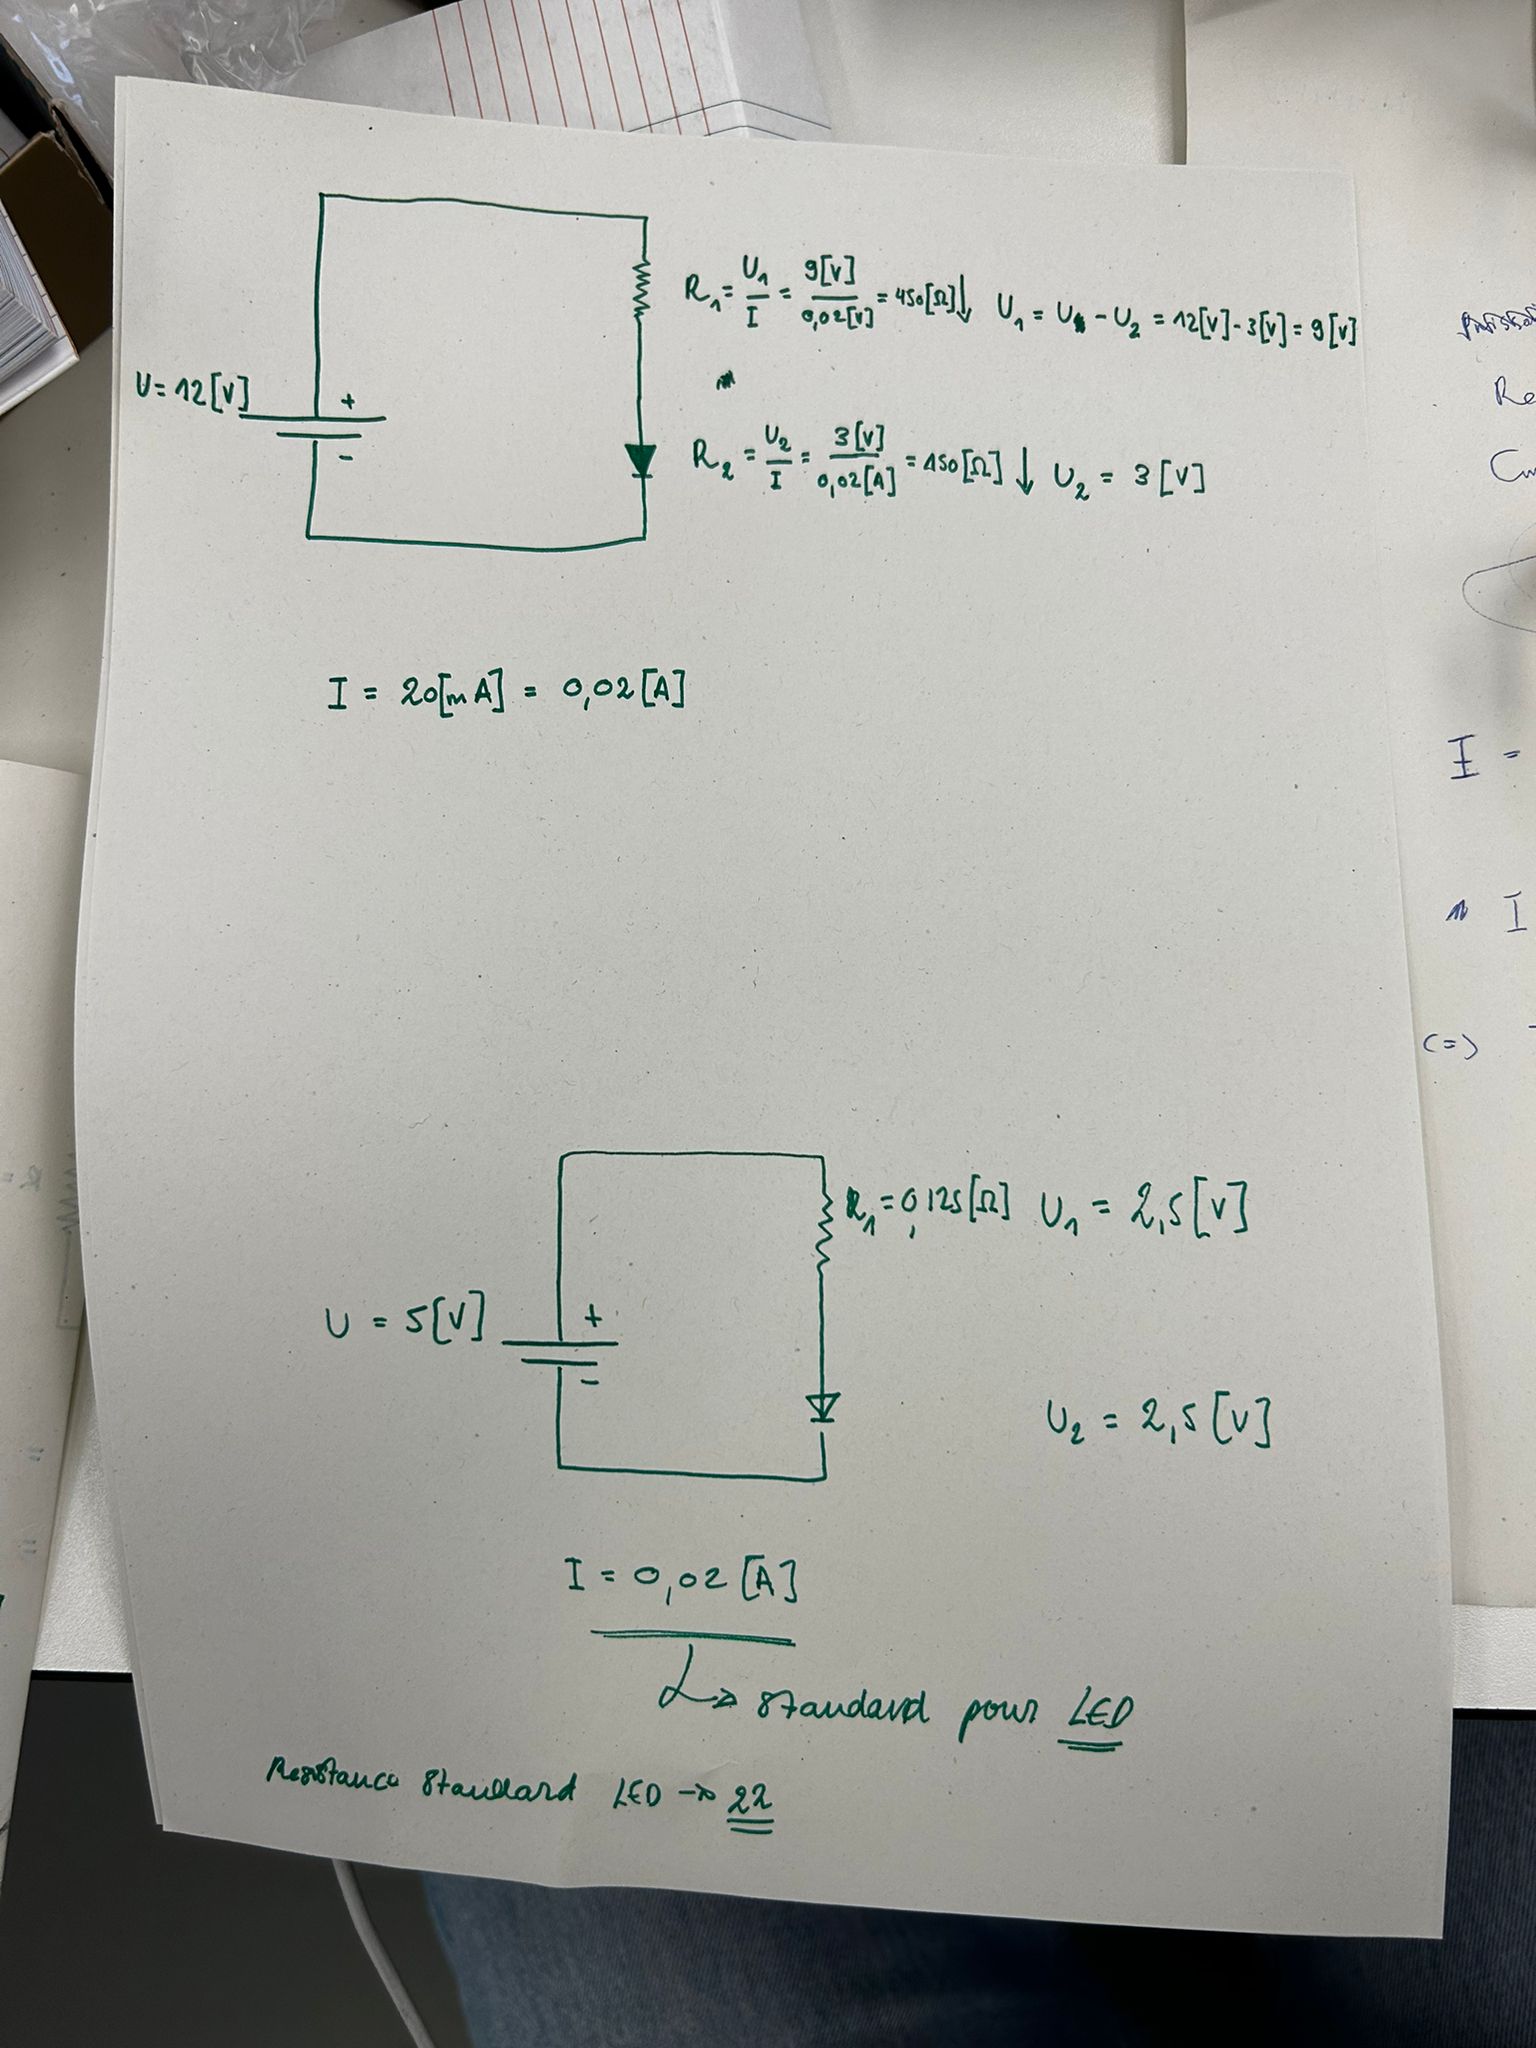 R₁ = U₁/I = 9[V]/0,02[V] = 450[Ω] ↓ U₁ = U - U₂ = 12[V] - 3[V] = 9[V]
U = 12[V]
+
-
R₂ = U₂/I = 3[V]/0,02[A] = 150[Ω] ↓ U₂ = 3[V]
I = 20[mA] = 0,02[A]
R₁ = 0,125[Ω] U₁ = 2,5[V]
U = 5[V]
+
-
U₂ = 2,5[V]
I = 0,02[A]
↳ standard pour LED
Resistance standard LED → 22
Re
I =
I
(=)